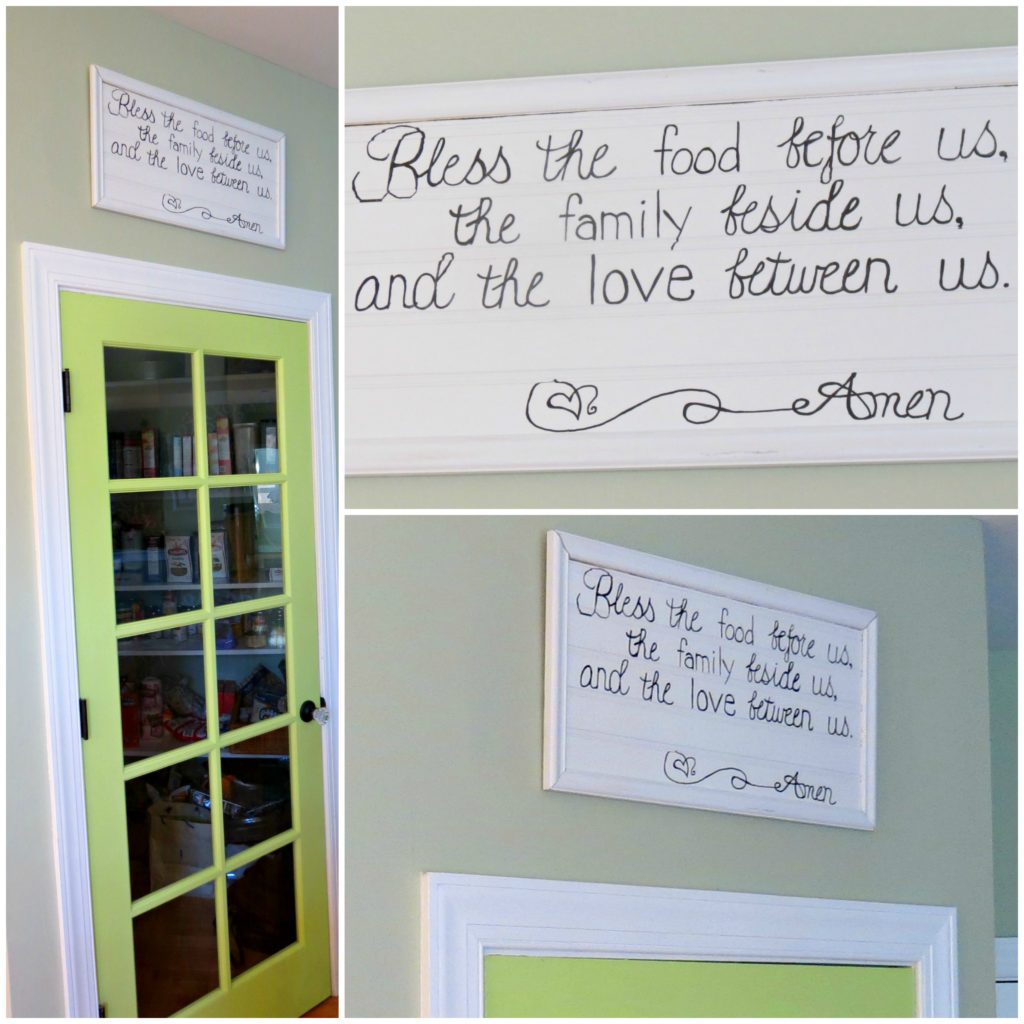 Bless the food before us,
the family beside us,
and the love between us.
Amen
Bless the food before us,
the family beside us,
and the love between us.
Amen
Bless the food before us,
the family beside us,
and the love between us.
Amen